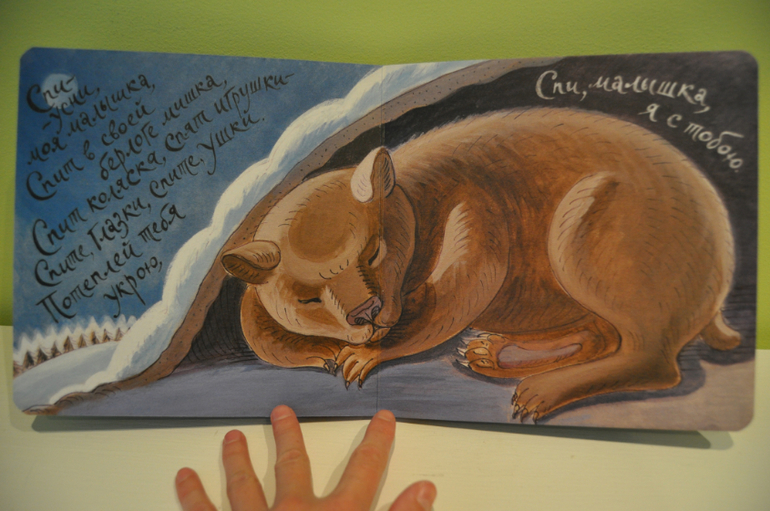 Спи-
-усни,
моя малышка,
Спит в своей
берлоге мишка,
Спит коляска, Спят игрушки-
Спите, Глазки, спите, ушки.
Потеплей тебя
укрою,
Спи, малышка,
я с тобою.